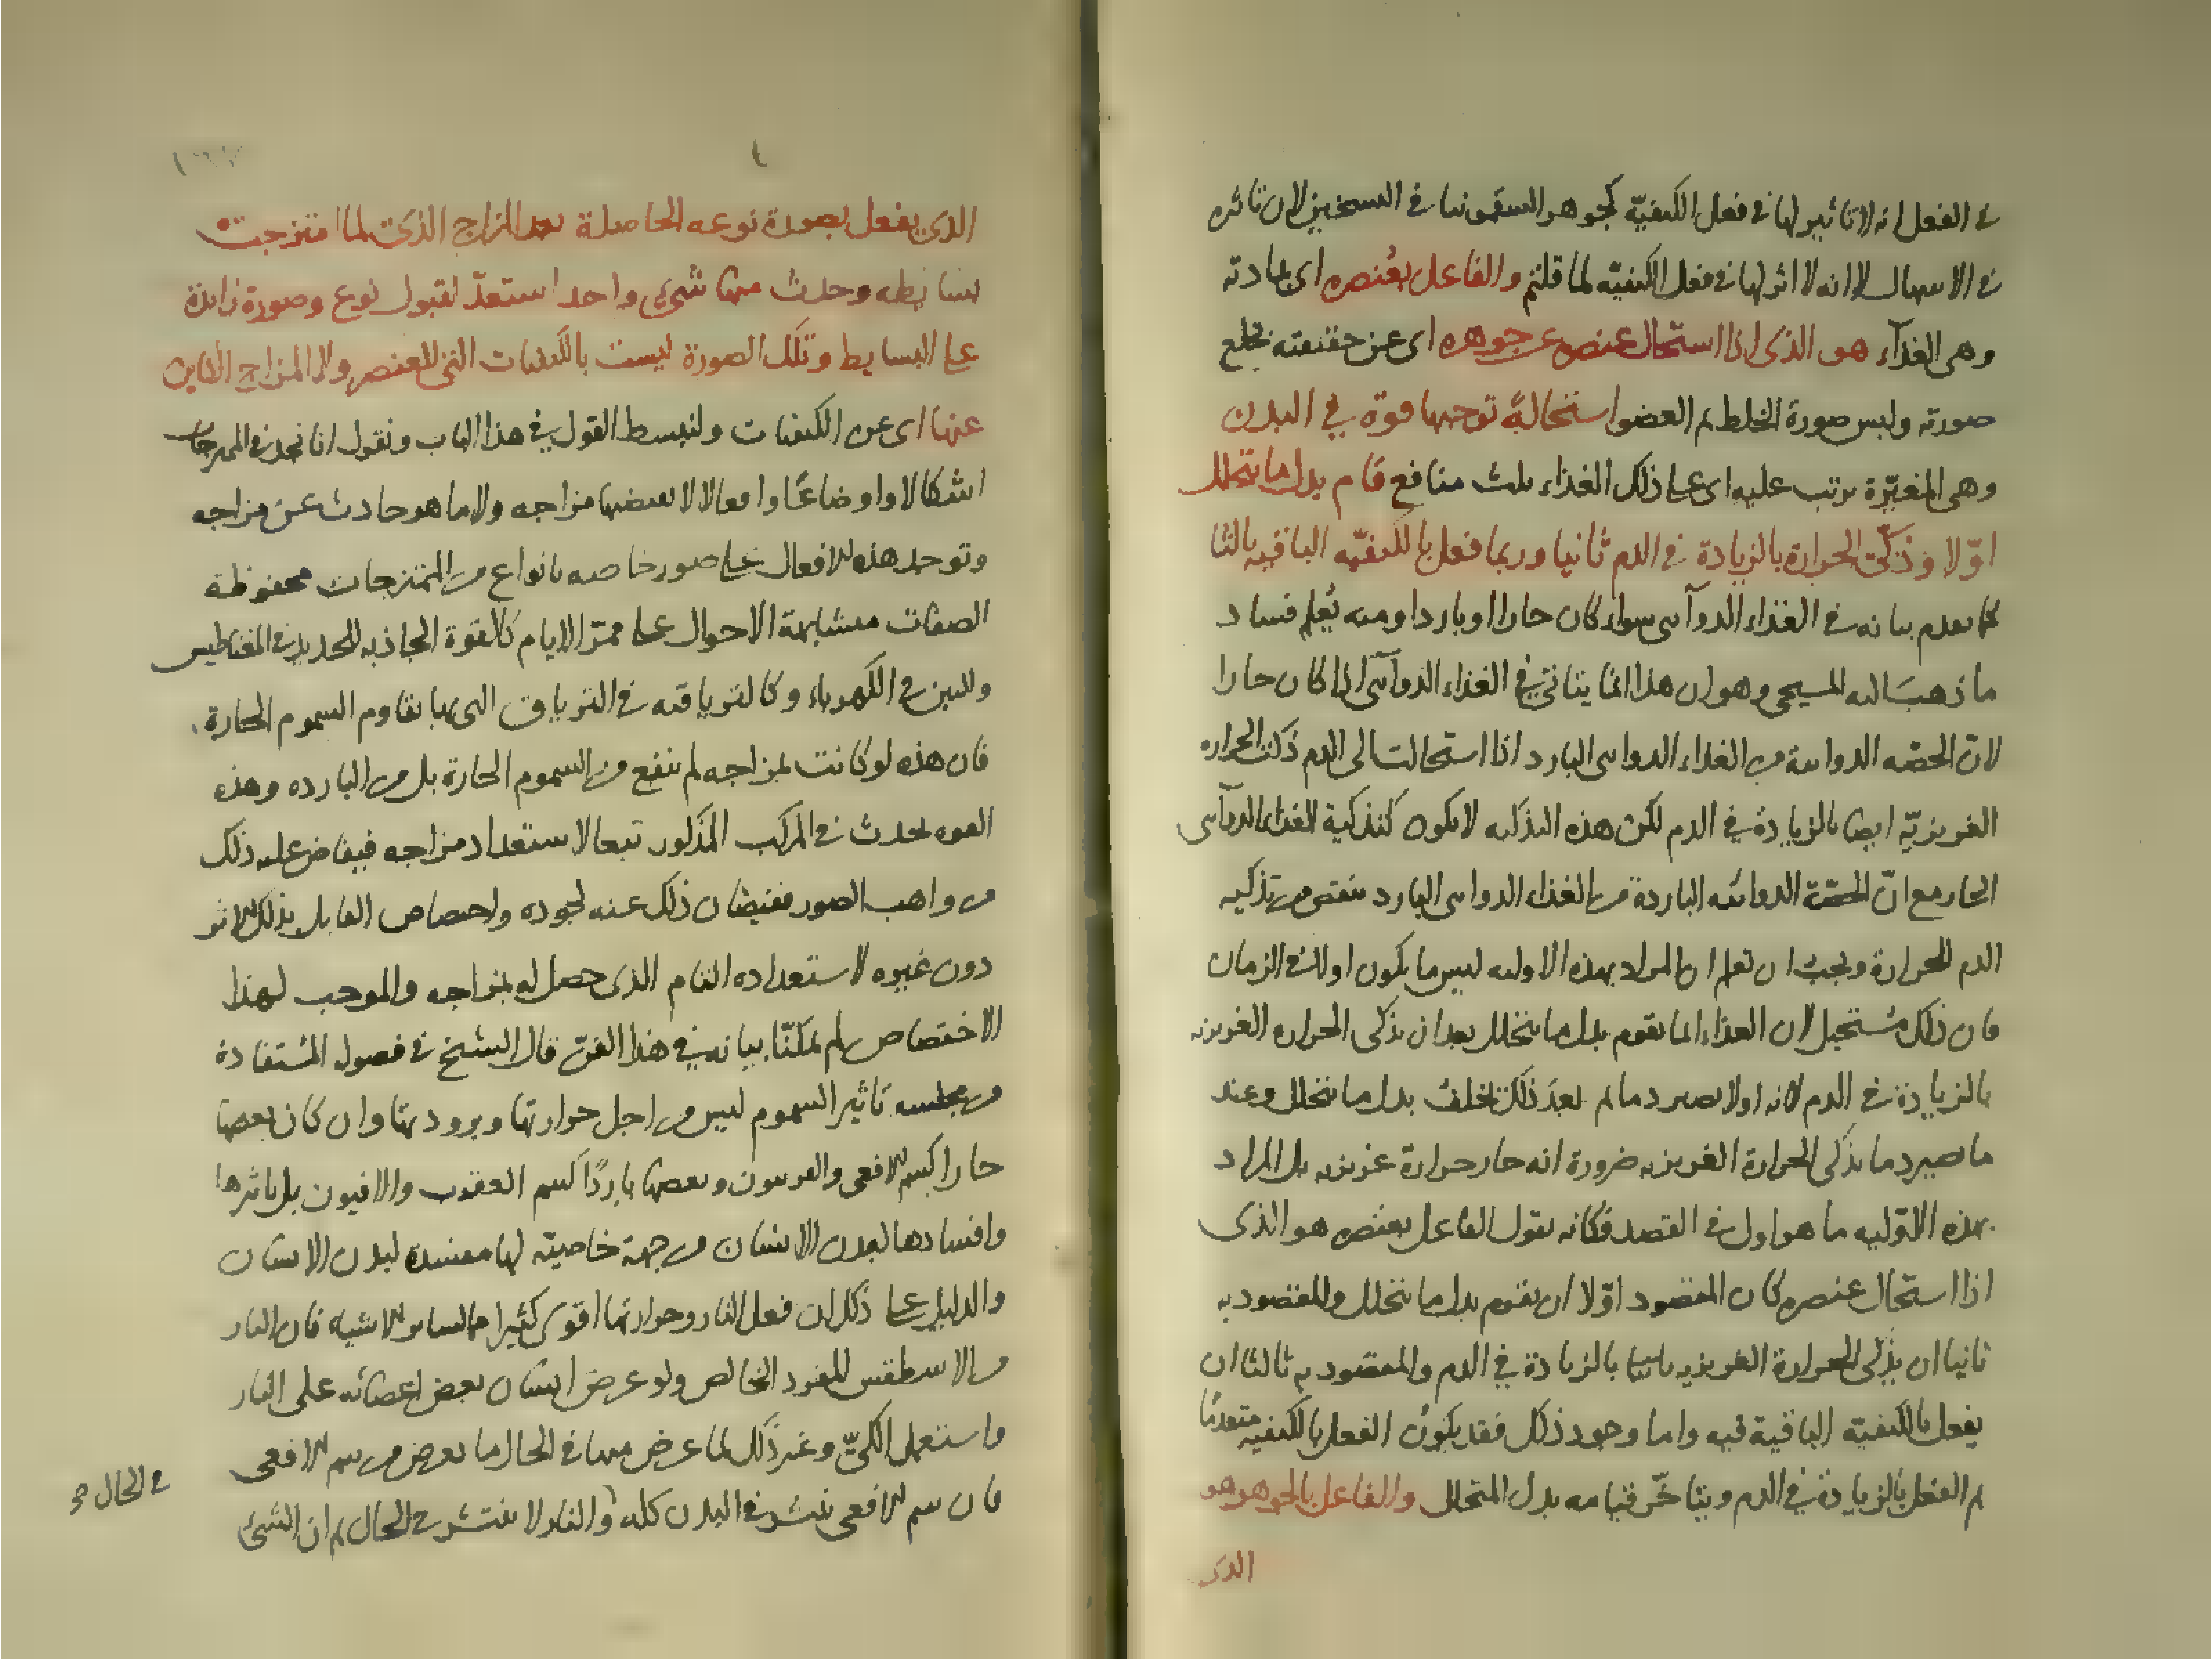 في الفعل انه لا تاثير لها في فعل الكيفيّة كجوهر السقمونيا في التسخين لان تاثيره
في الاسهال الا انه لا اثر لها في فعل الكيفيّة لما قلتم والفاعل بعُنصره اى بمادته
وهى الغذآء هو الذى اذا استحال عنصره عن جوهره اى عن حقيقته بخلع
صورته ولبس صورة الخلط ثم العضو استحالةً توجبها قوة في البدن
وهى المغيّرة يرتب عليه اى على ذلك الغذاء ثلث منافع قام بدل ما يتحلل
اوّلا وذكّى الحرارة بالزيادة في الدم ثانيا وربما فعل بالكيفيّه الباقيه ثالثا
كما تقدم بيانه في الغذاء الدوآىى سواء كان حارا او باردا ومنه يُعلم فساد
ما ذهبَ اليه المسيحى وهو ان هذا انما يتاتى في الغذاء الدوآئى اذا كان حارا
لانّ الحصّه الدوائية من الغذاء الدوايى البارد اذا استحالت الى الدم ذكت الحراره
الغريزيّة ايضا بالزيادة في الدم لكن هذه التذكيه لا يكون كتذكية الغذاء الدوآئى
الحار مع انّ الحصّة الدوائيه الباردة من الغذاء الدوايى البارد ينقص من تذكيه
الدم للحرارة ويجبُ ان تعلم ان المراد بهذه الاوليه ليس ما يكون اولا في الزمان
فان ذلك مُستحيل لان الغذاء انما يقوم بدل ما يتحلل بعد ان يذكى الحراره الغريزيه
بالزيادة في الدم لانه اولا يصير دما ثم بعدَ ذلك يخلف بدل ما يتحلل وعند
ما يصير دما يذكى الحرارة الغريزيه ضرورة انه حار حرارة غريزيه بل المراد
بهذه الاوّليه ما هو اول في القصد فكانه يقول الفاعل بعنصره هو الذى
اذا استحال عنصره كان المقصود اوّلا ان يقوم بدل ما يتحلل والمقصود به
ثانيا ان يذكى الحرارة الغريزيه ثانيا بالزيادة في الدم والمقصود به ثالثا ان
يفعل بالكيفيّة الباقية فيه واما وجود ذلك فقد يكون الفعل بالكيفيه متعدمًا
ثم الفعل بالزيادة في الدم ويتاخّر قيامه بدل المتحلل والفاعل بالجوهر هو
الذى
الذى يفعل بصورة نوعه الحاصلة بعد المزاج الذى لما امتزجت
بسايطه وحدث منها شىء واحد استعدّ لقبول نوع وصورة زايدة
على البسايط وتلك الصورة ليست بالكيفيات التى للعنصر ولا المزاج الكاين
عنها اى عن الكيفيات ولنبسط القول في هذا الباب ونقول انا نجد في الممتزجات
اشكالا واوضاعًا وافعالا لا يقتضيها مزاجه ولا ما هو حادث عن مزاجه
وتوجد هذه الافعال على صور خاصه بانواع من الممتزجات محفوظة
الصفات متشابهة الاحوال على ممرّ الايام كالقوة الجاذبه للحديد في المغناطيس
وللتبن في الكهرباء وكالترياقيه في الترياق التى بها يقاوم السموم الحارة
فان هذه لو كانت لمزاجه لم ينفع من السموم الحارة بل من البارده وهذه
القوه تحدث في المركب المذكور تبعا لاستعداد مزاجه فيفاض عليه ذلك
من واهب الصور ففيضان ذلك عنه لجوده واختصاص القابل بذلك الاثر
دون غيره لاستعداده التام الذى حصل له بمزاجه والموجب لهذا
الاختصاص لم يمكنّا بيانه في هذا الفنّ قال الشيخ في فصول المُستفادة
من مجلسه تاثير السموم ليس من اجل حرارتها وبرودتها وان كان بعضها
حارا كسم الافعى والفربيون وبعضها باردًا كسم العقرب والافيون بل تاثيرها
وافسادها لبدن الانسان من جهة خاصيّة لها مفسدة لبدن الانسان
والدليل على ذلك ان فعل النار وحرارتها اقوى كثيرا من الساير الاشياء فان النار
من الاسطقس المفرد الخالص ولو عرض انسان بعض اعضائه على النار
واستعمل الكىّ وغير ذلك لما عرض منها في الحال ما يعرض من سم الافعى
فان سم الافعى ينتشر في البدن كله والنار لا ينتشر في الحال ثم ان الشىء
في الحال